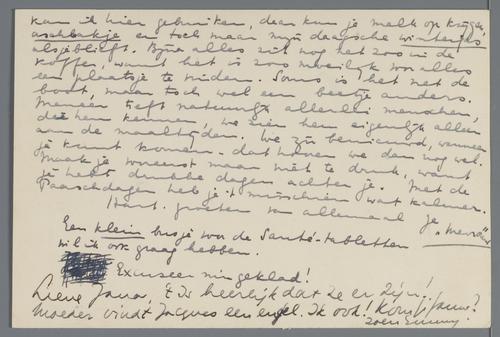 kan ik hier gebruiken, daar kun je melk op krijgen,
aschbakje en toch maar mijn daagsche winterjas
alsjeblieft. Bijna alles zit nog het zoo in de
koffer, want het is zoo moeilijk voor alles
een plaatsje te vinden. Soms is het net de
boot, maar toch wel een beetje anders.
Meneer treft natuurlijk allerlei menschen,
die hen kennen, we zien hen eigenlijk alleen
aan de maaltijden. We zijn benieuwd, wanneer
je kunt komen - dat hooren we dan nog wel.
Maak je vooreerst maar niet te druk, want
je hebt drukke dagen achter je. Met de
Paaschdagen heb je 't misschien wat kalmer.
Hart. groeten van allemaal je
Een klein busje voor de Santé-tabletten
wil ik ook graag hebben.
Excuseer mijn geklad!
Lieve Janna, 't Is heerlijk dat ze er zijn! Kom jij gauw?
Moeder vindt Jacques een engel. Ik ook!
zoen